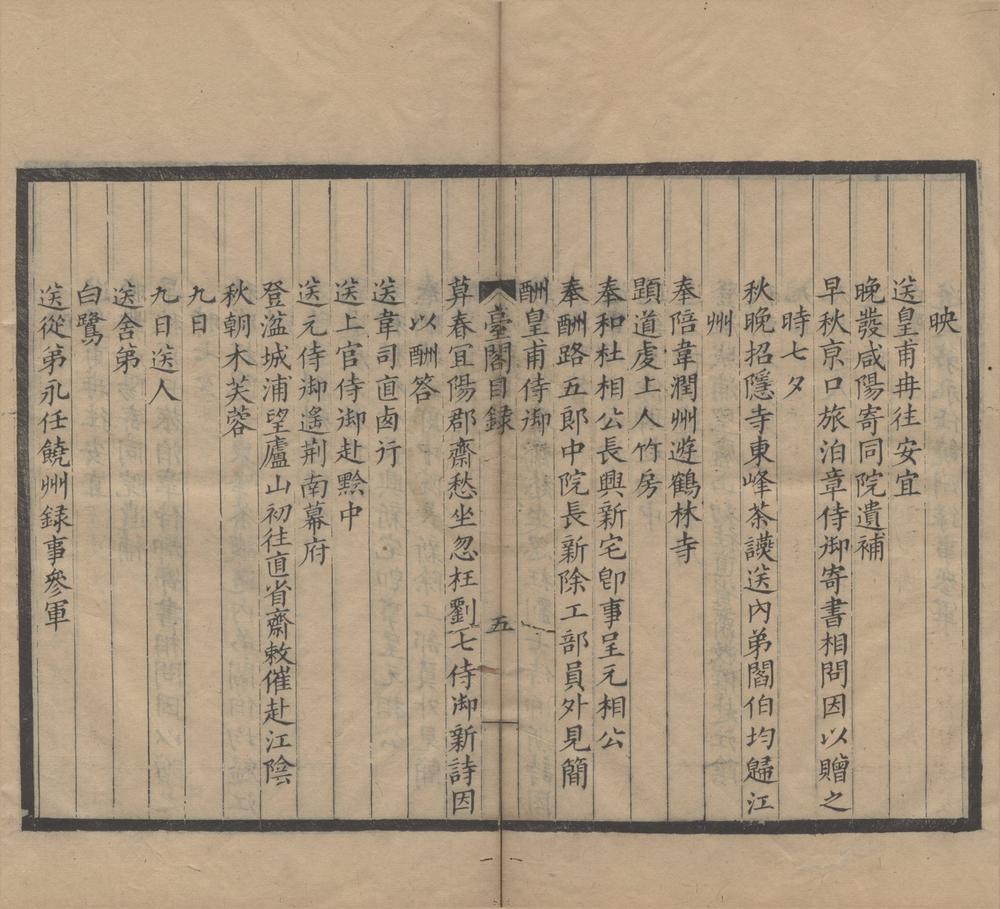 映
送皇甫冉往安宜
晚發咸陽寄同院遺補
早秋京口旅泊章侍御寄書相問因以贈之
時七夕
秋晚招隱寺東峰茶讌送內弟閻伯均歸江
州
奉陪韋潤州遊鶴林寺
題道虔上人竹房
奉和杜相公長興新宅卽事呈元相公
奉酬路五郎中院長新除工部員外見簡
酬皇甫侍御
臺閣目録
五
算春冝陽郡齋愁坐忽枉劉七侍御新詩因
以酬答
送韋司直西行
送上官侍御赴黔中
送元侍御還荆南幕府
登湓城浦望廬山初往直省齋敕催赴江陰
秋朝木芙蓉
九日
九日送人
送舍弟
白鷺
送從弟永任饒州録事參軍